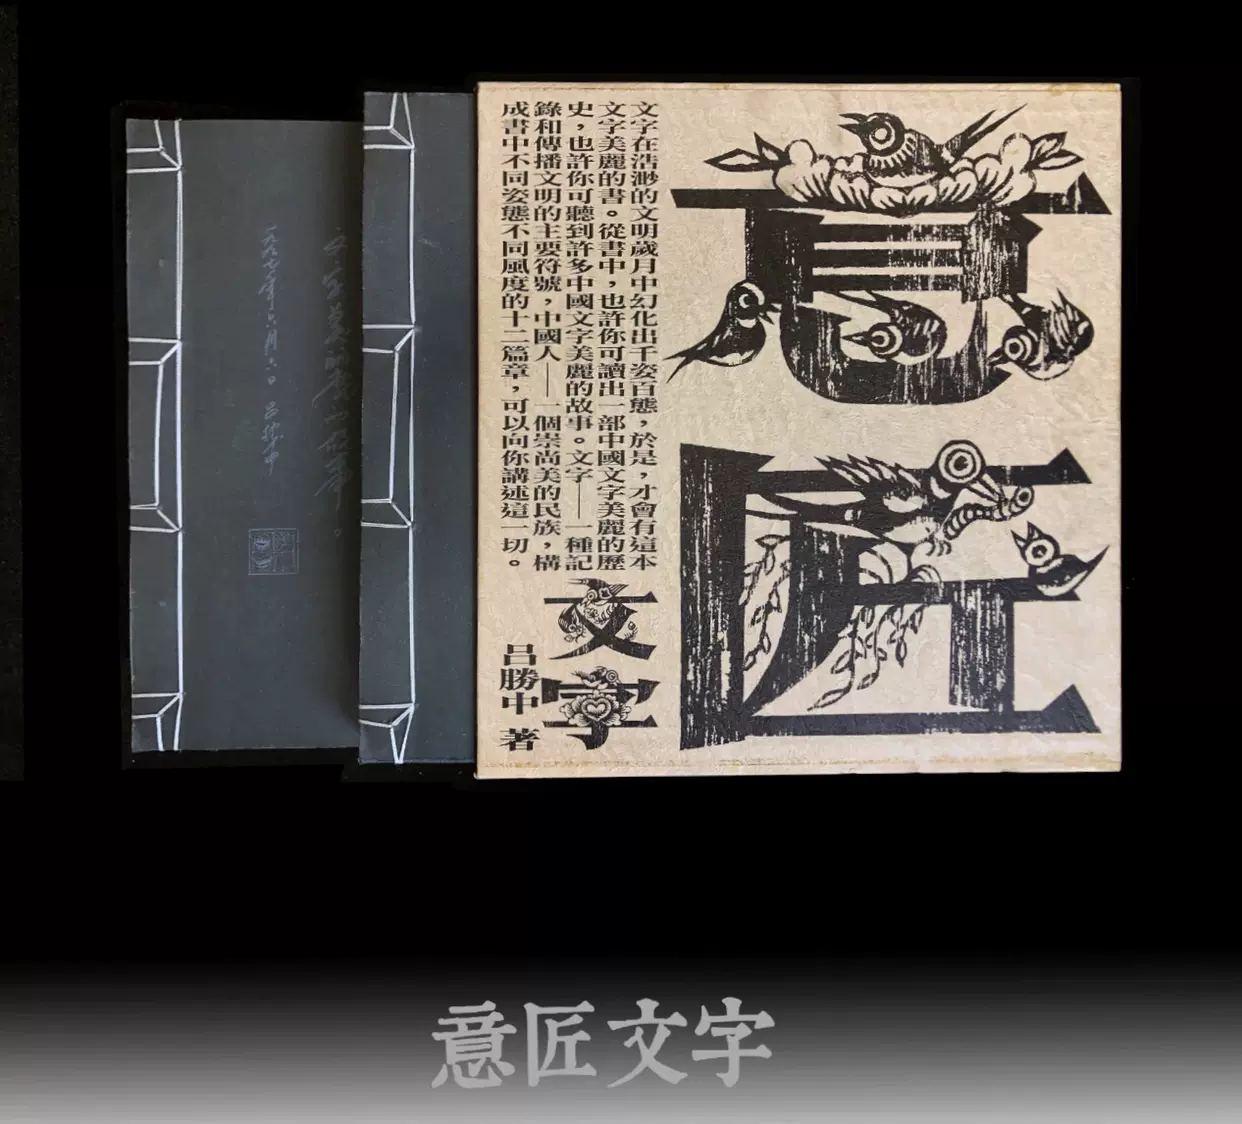 意匠
文字在浩渺的文明歲月中幻化出千姿百態，於是，才會有這本
文字美麗的書。從書中，也許你可讀出一部中國文字美麗的歷
史，也許你可聽到許多中國文字美麗的故事。文字——一種記
錄和傳播文明的主要符號，中國人——一個崇尚美的民族，構
成書中不同姿態不同風度的十二篇章，可以向你講述這一切。
文字
呂勝中 著
一九九七年六月六日 呂勝中
意匠文字